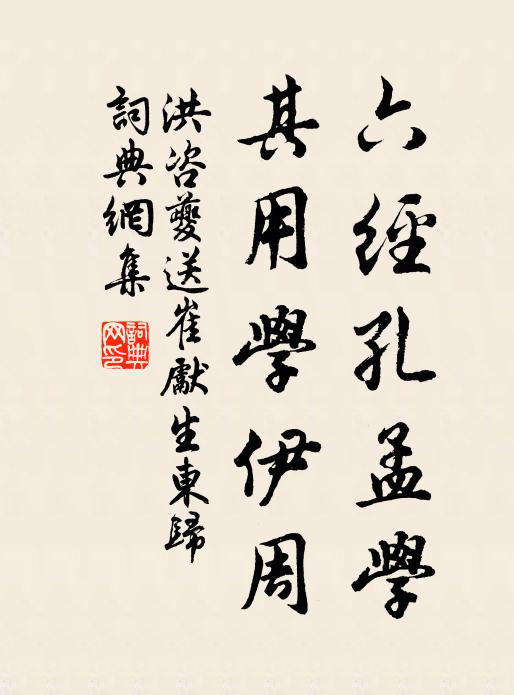 六經孔孟學
其用學伊周
洪咨夔送崔獻生東歸
詞典網集
詞典
网印